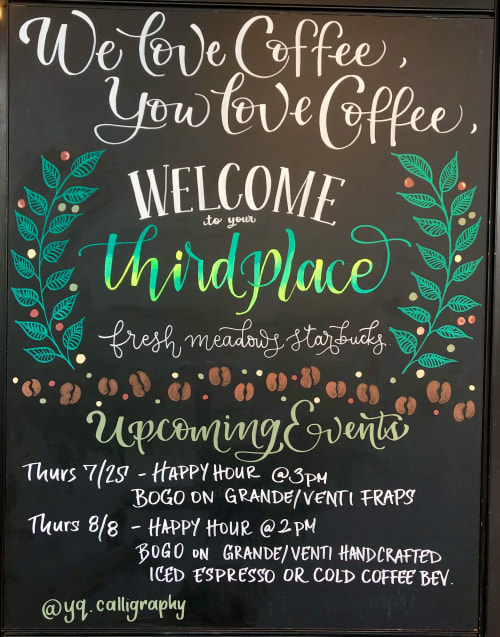 We love Coffee,
You love Coffee,
WELCOME
to your
third place
fresh meadows starbucks.
Upcoming Events
Thurs 7/25 - HAPPY HOUR @3PM
BOGO ON GRANDE/VENTI FRAPS
Thurs 8/8 - HAPPY HOUR @ 2PM
BOGO on GRANDE/VENTI HANDCRAFTED
ICED ESPRESSO OR COLD COFFEE BEV.
@yq.calligraphy